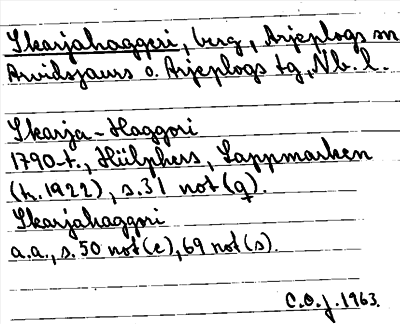 Skarjahaggeri, berg, Arjeplogs sn
Arvidsjaurs o. Arjeplogs tg, Nb. l.
Skarja-Haggori
1790-t., Hülphers, Lappmarken
(tr. 1922), s. 31 not (q).
Skarjahaggori
a.a., s. 50 not (e), 69 not (s).
C.O.J. 1963.